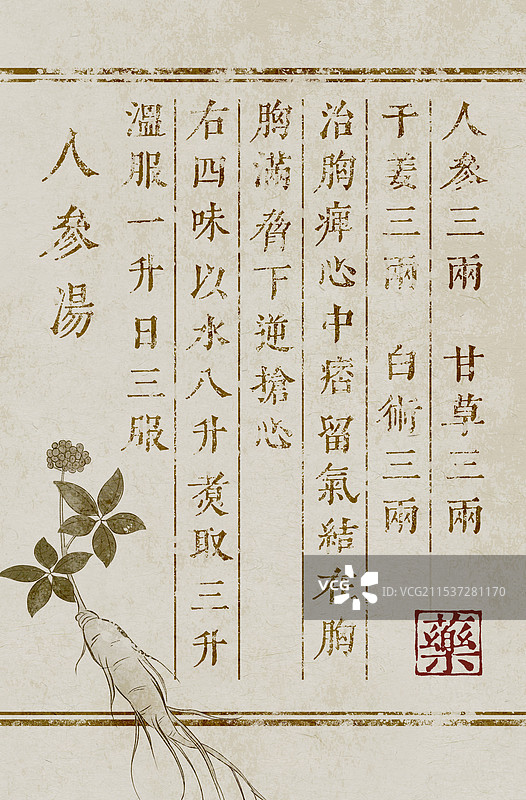 人參三兩 甘草三兩
干姜三兩 白術三兩
治胸痺心中痞留氣結在胸
胸滿脅下逆搶心
右四味以水八升煑取三升
溫服一升日三服
人參湯
藥
VCG ID:VCG211537281170